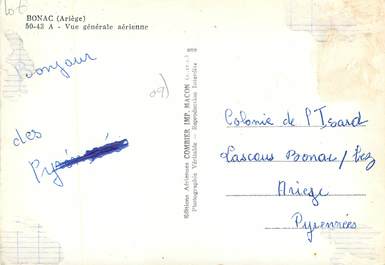 Lot
BONAC (Ariège)
50-43 A - Vue générale aérienne
Bonjour
des
09)
Editions Aériennes COMBIER IMP. MACON
Photographie Véritable - Reproduction Interdite
Colonie de l'Isard
Lascoux Bonac/Lez
Ariege
Pyrennées